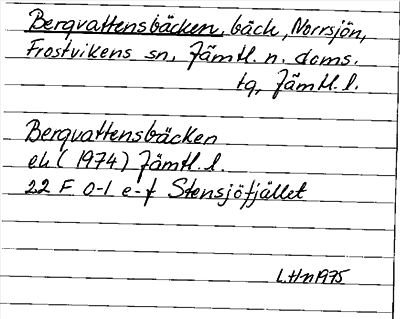 Bergvattensbäcken, bäck, Norrsjön,
Frostvikens sn, Jämtl. n. doms.
tg, Jämtl. l.
Bergvattensbäcken
ek (1974) Jämtl. l.
22 F 0-1 e-f Stensjöfjället
L.Hn 1975